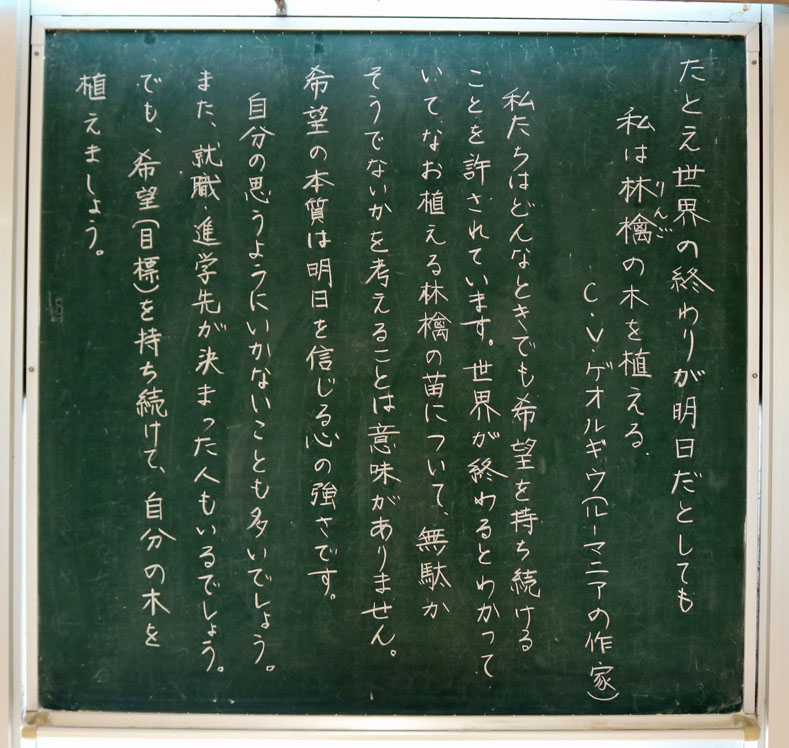 たとえ世界の終わりが明日だとしても
私は林檎の木を植える.
りんご
C.V.ゲオルギウ(ルーマニアの作家)
私たちはどんなときでも希望を持ち続ける
ことを許されています。世界が終わるとわかって
いてなお植える林檎の苗について、無駄か
そうでないかを考えることは意味がありません。
希望の本質は明日を信じる心の強さです。
自分の思うようにいかないことも多いでしょう。
また、就職・進学先が決まった人もいるでしょう。
でも、希望(目標)を持ち続けて、自分の木を
植えましょう。